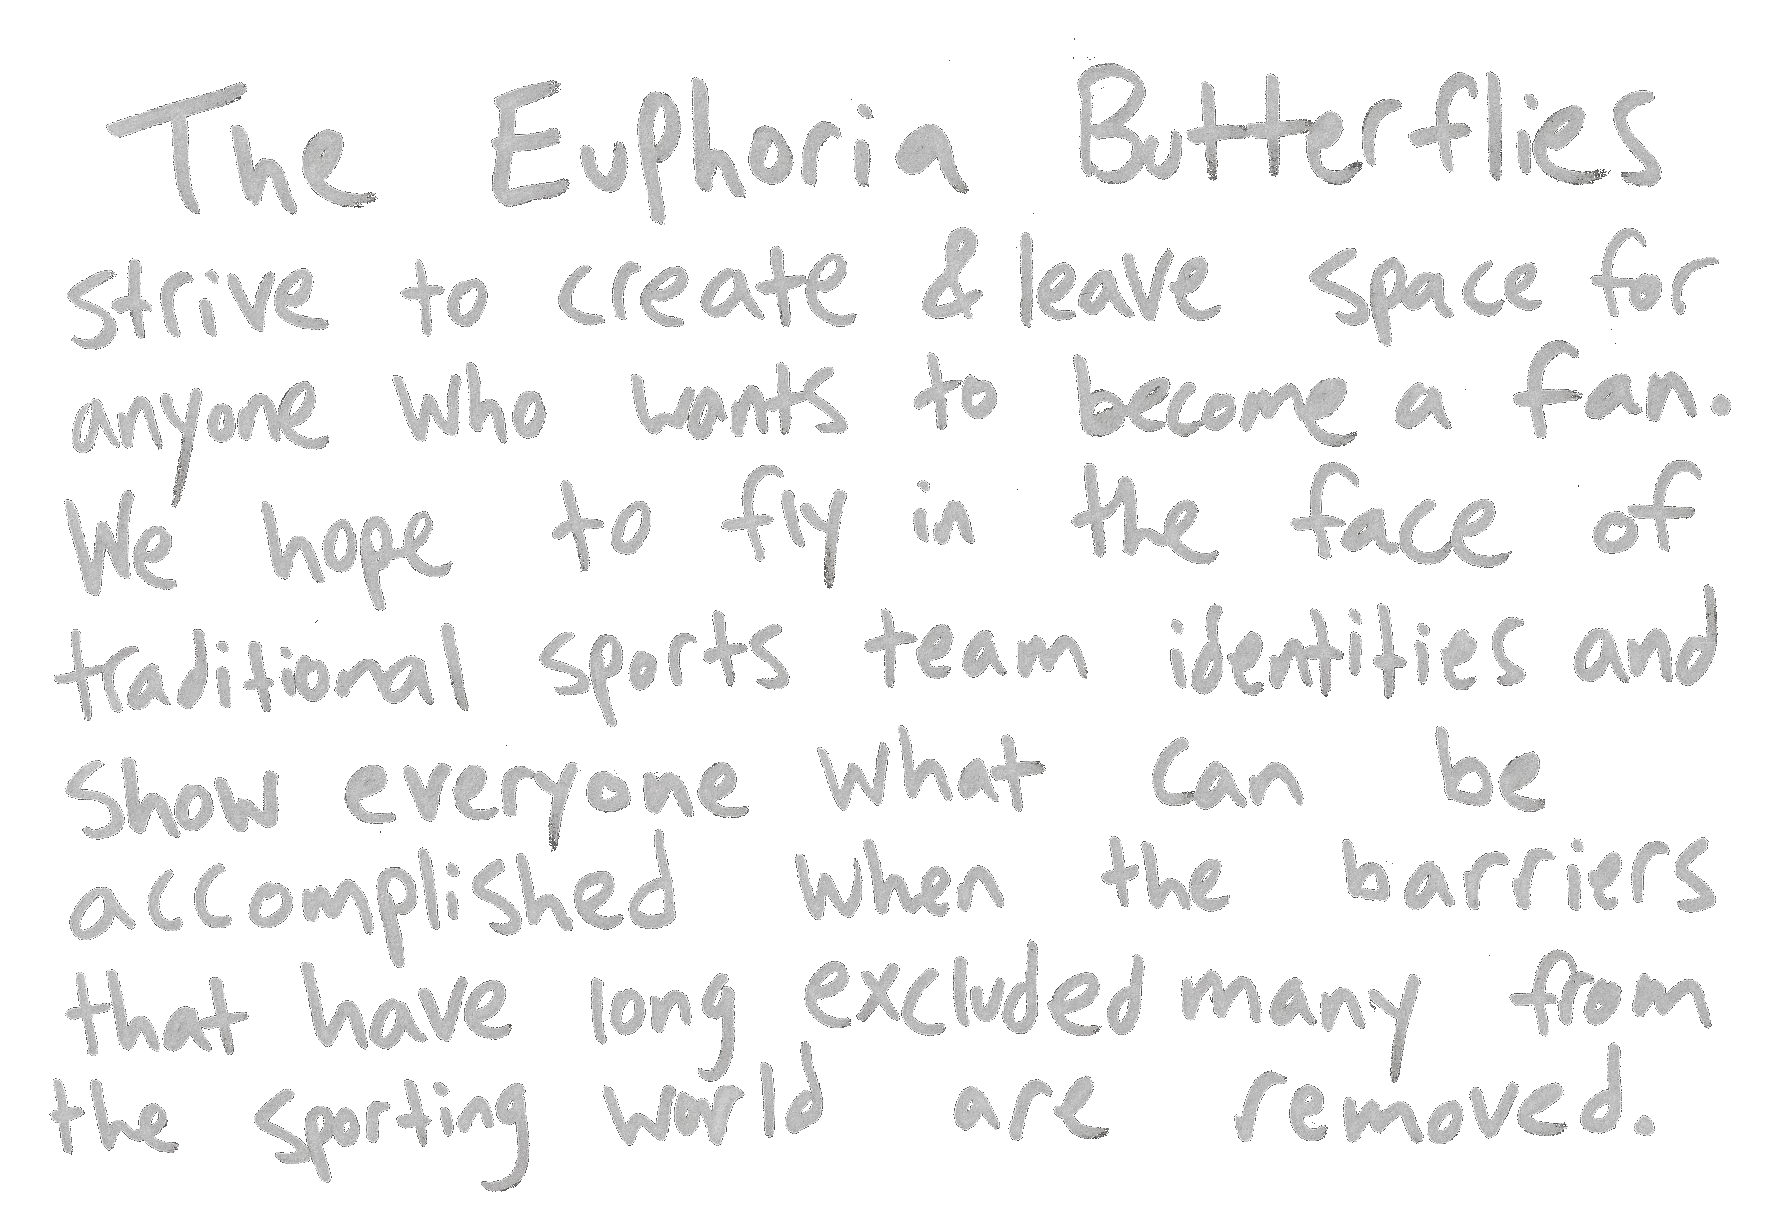 The Euphoria Butterflies
strive to create & leave space for
anyone who wants to become a fan.
We hope to fly in the face of
traditional sports team identities and
show everyone what can be
accomplished when the barriers
that have long excluded many from
the sporting world are removed.